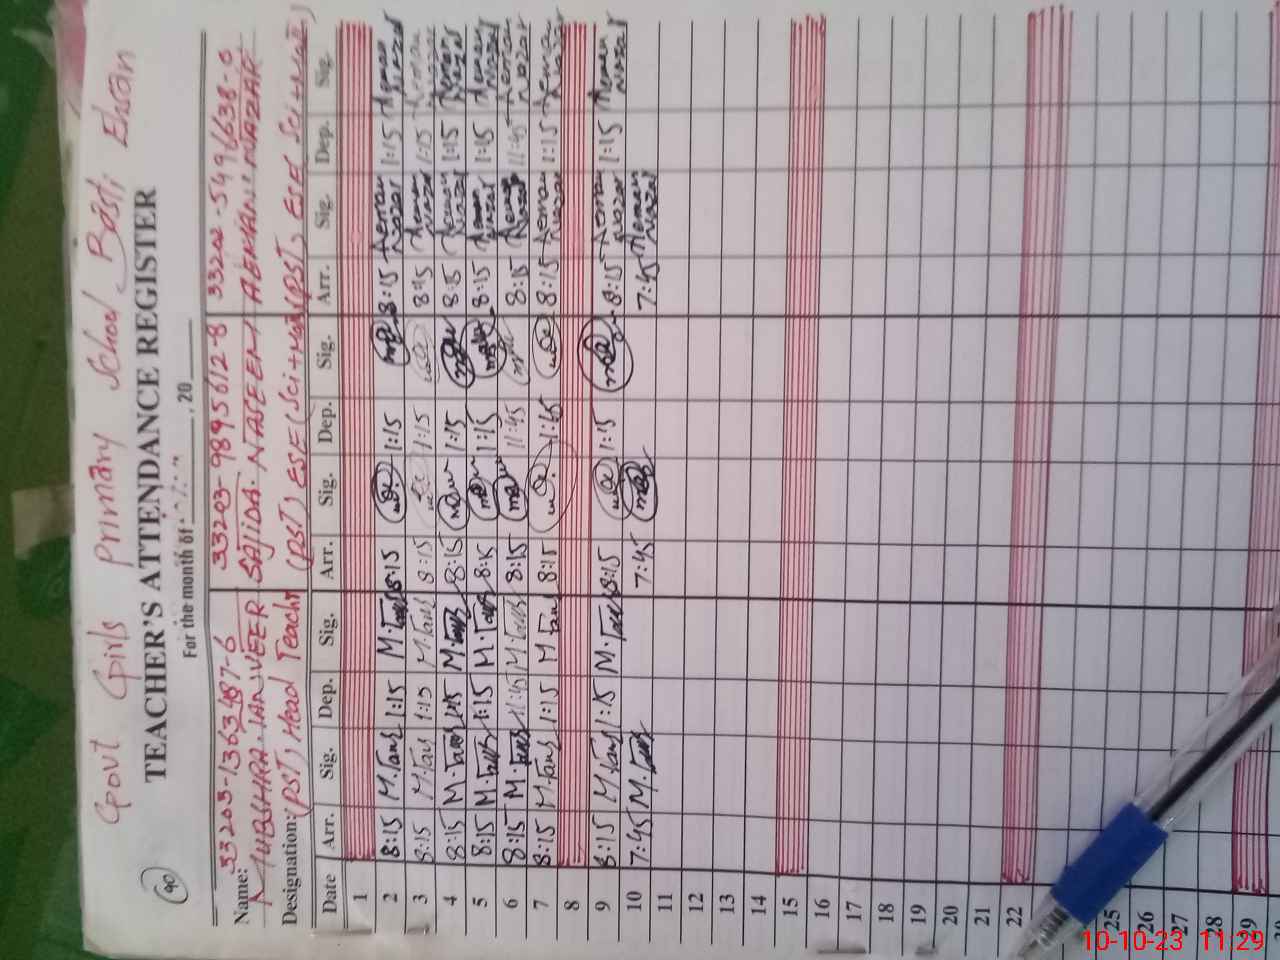 Govt Girls Primary School Basti Ehsan
90
TEACHER'S ATTENDANCE REGISTER
For the month of , 20
33203-1363487-6 33203-9895612-8 33202-5496638-0
Name: MUBSHRA TANVEER SAJIDA NASEEM AEMAN NAZAR
Designation: (PST) Head Teacher (PST) ESE (Sci+Math) (PST) ESE Sci+Math)
Date Arr. Sig. Dep. Sig. Arr. Sig. Dep. Sig. Arr. Sig. Dep. Sig.
1
2 8:15 M.Tanv 1:15 M.Tanv 8:15 1:15 8:15 Aeman Nazar 1:15 Aeman Nazar
3 8:15 M.Tanv 1:15 M.Tanv 8:15 1:15 8:15 Aeman Nazar 1:15 Aeman Nazar
4 8:15 M.Tanv 1:15 M.Tanv 8:15 1:15 8:15 Aeman Nazar 1:15 Aeman Nazar
5 8:15 M.Tanv 1:15 M.Tanv 8:15 1:15 8:15 Aeman Nazar 1:15 Aeman Nazar
6 8:15 M.Tanv 11:45 M.Tanv 8:15 11:45 8:15 Aeman Nazar 11:45 Aeman Nazar
7 8:15 M.Tanv 1:15 M.Tanv 8:15 1:15 8:15 Aeman Nazar 1:15 Aeman Nazar
8
9 8:15 M.Tanv 1:15 M.Tanv 8:15 1:15 8:15 Aeman Nazar 1:15 Aeman Nazar
10 7:45 M.Tanv 7:45 7:45 Aeman Nazar
11
12
13
14
15
16
17
18
19
20
21
22
25
26
27
28
29
10-10-23 11:29